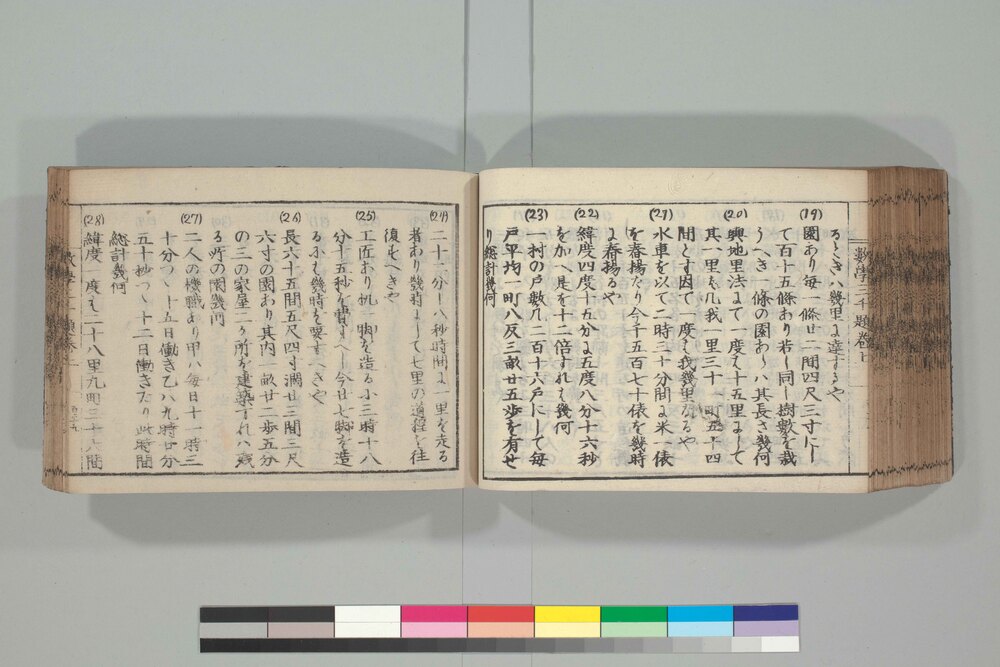 るときハ幾里に達するや
(19)
園あり毎一條廿二間四尺三寸にし
て百十五條あり若し同し樹數を栽
うへき一條の園あらハ其長さ幾何
(20)
輿地里法よて一度を十五里よして
其一里を凡我一里三十一町
間とす因て一度を我幾里なるや
(21)
水車を以て二時三十分間よ米一俵
を舂揚たり今千五百七十俵を幾時
よ舂揚るや
(22)
緯度四度十五分よ五度八分十六秒
を加へ是を十二倍すれは幾何
(23)
一村の戸數凡二百十六戸にして毎
戸平均一町八反三畝廿五歩を有せ
り總計幾何
(24)
二十八分十八秒時間よ一里を走る
者あり幾時よして七里の道程を往
復すへきや
(25)
工匠あり机一脚を造る小三時十八
分十五秒を費すへし今廿七脚を造
るふも幾時を要すへきや
(26)
長六十五間五尺四寸濶廿三間二尺
六寸の園あり其内一畝廿二歩五分
の三の家屋二ヶ所を建築すれハ殘
る所の園幾何
(27)
二人の機職あり甲ハ毎日十一時三
十分つゝ十五日働き乙ハ九時廿分
五十秒つゝ十二日働きたり此時間
總計幾何
(28)
緯度一度を二十八里九町三十六間
數學三千題卷上